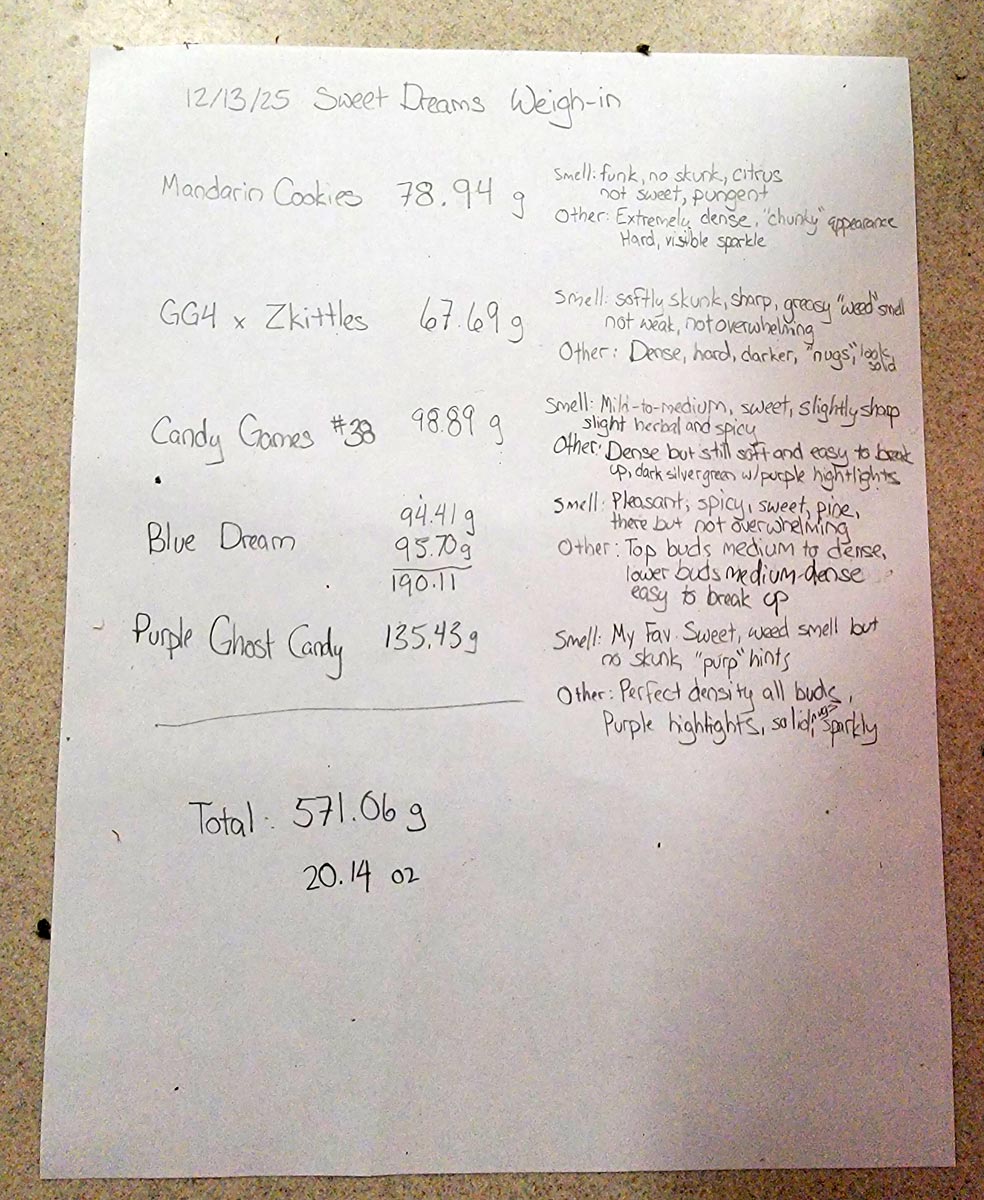 12/13/25 Sweet Dreams Weigh-in
Mandarin Cookies 78.94 g
Smell: funk, no skunk, citrus
not sweet, pungent
Other: Extremely dense, "chunky" appearance
Hard, visible sparkle
GG4 x Zkittles 67.69 g
Smell: softly skunk, sharp, greasy "weed" smell
not weak, not overwhelming
Other: Dense, hard, darker, "nugs," look
solid
Candy Games #38 98.89 g
Smell: Mild-to-medium, sweet, slightly sharp
slight herbal and spicy
Other: Dense but still soft and easy to break
up, dark silver green w/ purple hightlights
Blue Dream
94.41 g
95.70 g
190.11
Smell: Pleasant; spicy, sweet, pine,
there but not overwhelming
Other: Top buds medium to dense,
lower buds medium-dense
easy to break up
Purple Ghost Candy 135.43 g
Smell: My Fav. Sweet, weed smell but
no skunk, "purp" hints
Other: Perfect density all buds,
Purple hightights, solid, nugs sparkly
Total: 571.06 g
20.14 oz